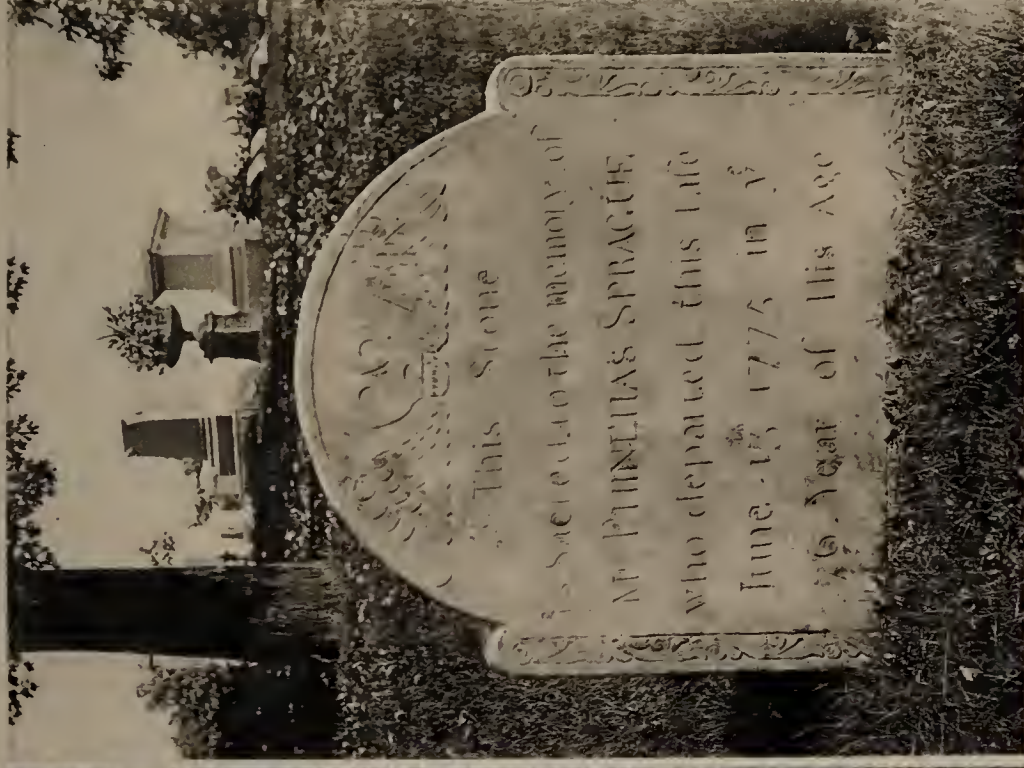 This Stone
is Sacred to the memory of
Mr PHINEHAS SPRAGUE
who departed this Life
June 15th 1775 in ye
Year of His Age